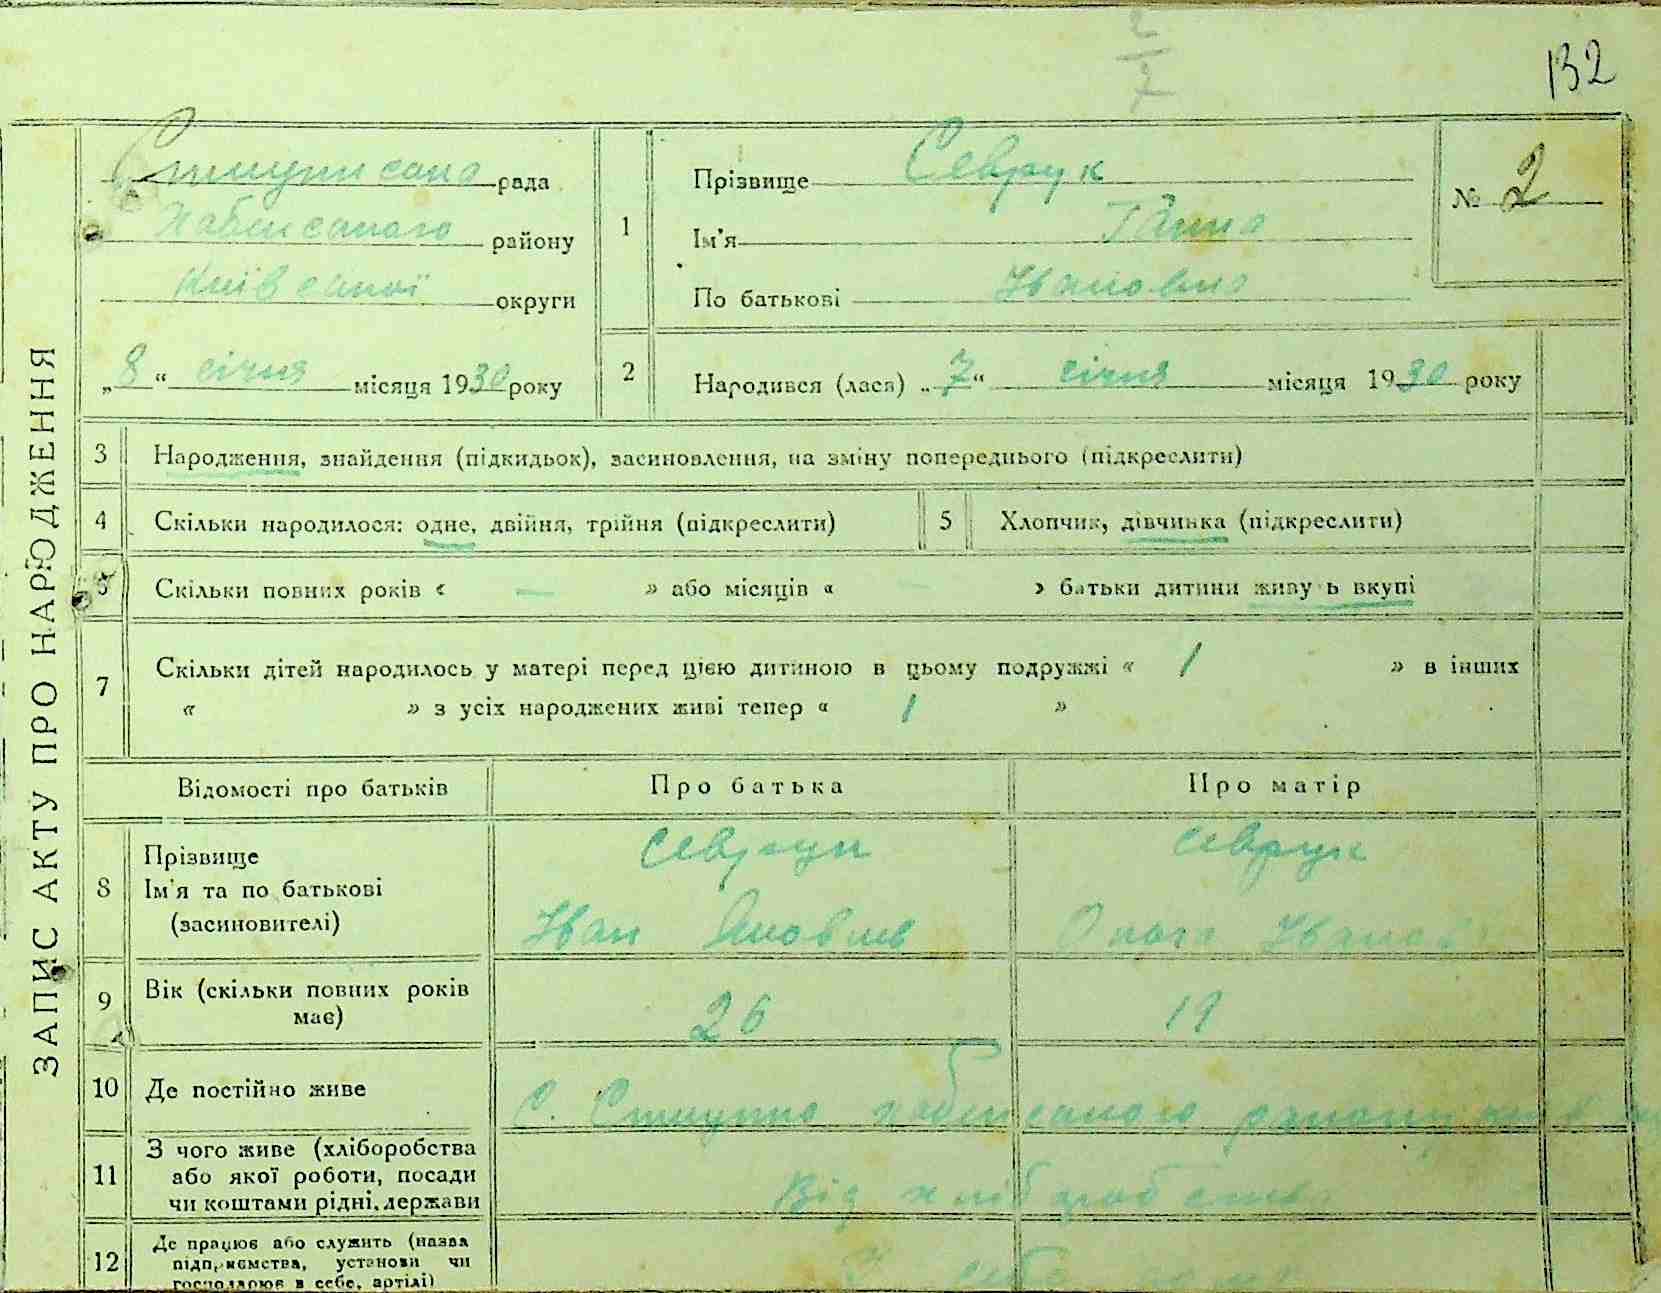 132
рада
Хабенського району
Київської округи
„8“ січня місяця 1930 року
ЗАПИС АКТУ ПРО НАРОДЖЕННЯ
1
Прізвище Севрук
Ім'я Ганна
По батькові Івановна
№ 2
2 Народився (лася) „7“ січня місяця 1930 року
3 Народження, знайдення (підкидьок), засиновлення, на зміну попереднього (підкреслити)
4 Скільки народилося: одне, двійня, трійня (підкреслити) 5 Хлопчик, дівчинка (підкреслити)
6 Скільки повних років « — » або місяців « — » батьки дитини живуть вкупі
7 Скільки дітей народилось у матері перед цією дитиною в цьому подружжі « 1 » в інших
« » з усіх народжених живі тепер « 1 »
Відомості про батьків Про батька Про матір
8 Прізвище Севрук Севрук
Ім'я та по батькові
(засиновителі) Іван Яковлев Ольга Іванов
9 Вік (скільки повних років має) 26 19
10 Де постійно живе С. хабенського району
11 З чого живе (хліборобства
або якої роботи, посади
чи коштами рідні, держави Від хліборобства
12 Де працює або служить (назва
підприємства, установи чи
господарює в себе, артілі)